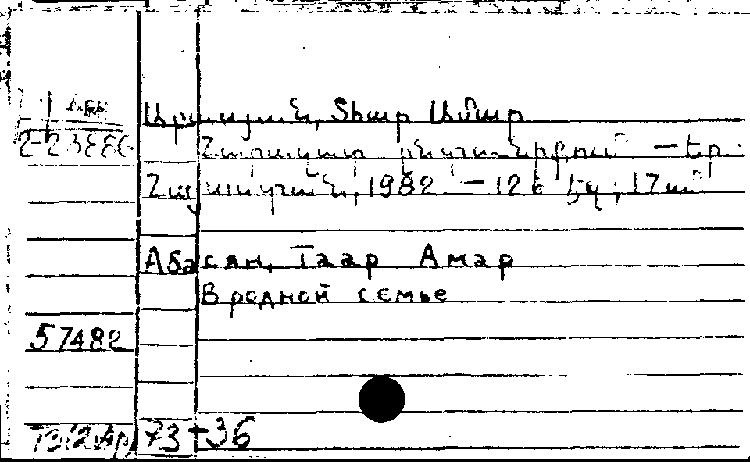 Աբասյան, Տհար Ամար
Հարազատ ընտանիքում — Եր.
Հայաստան, 1982 — 126 էջ, 17սմ
Абасян, Таар Амар
В родной семье
57482
73+36